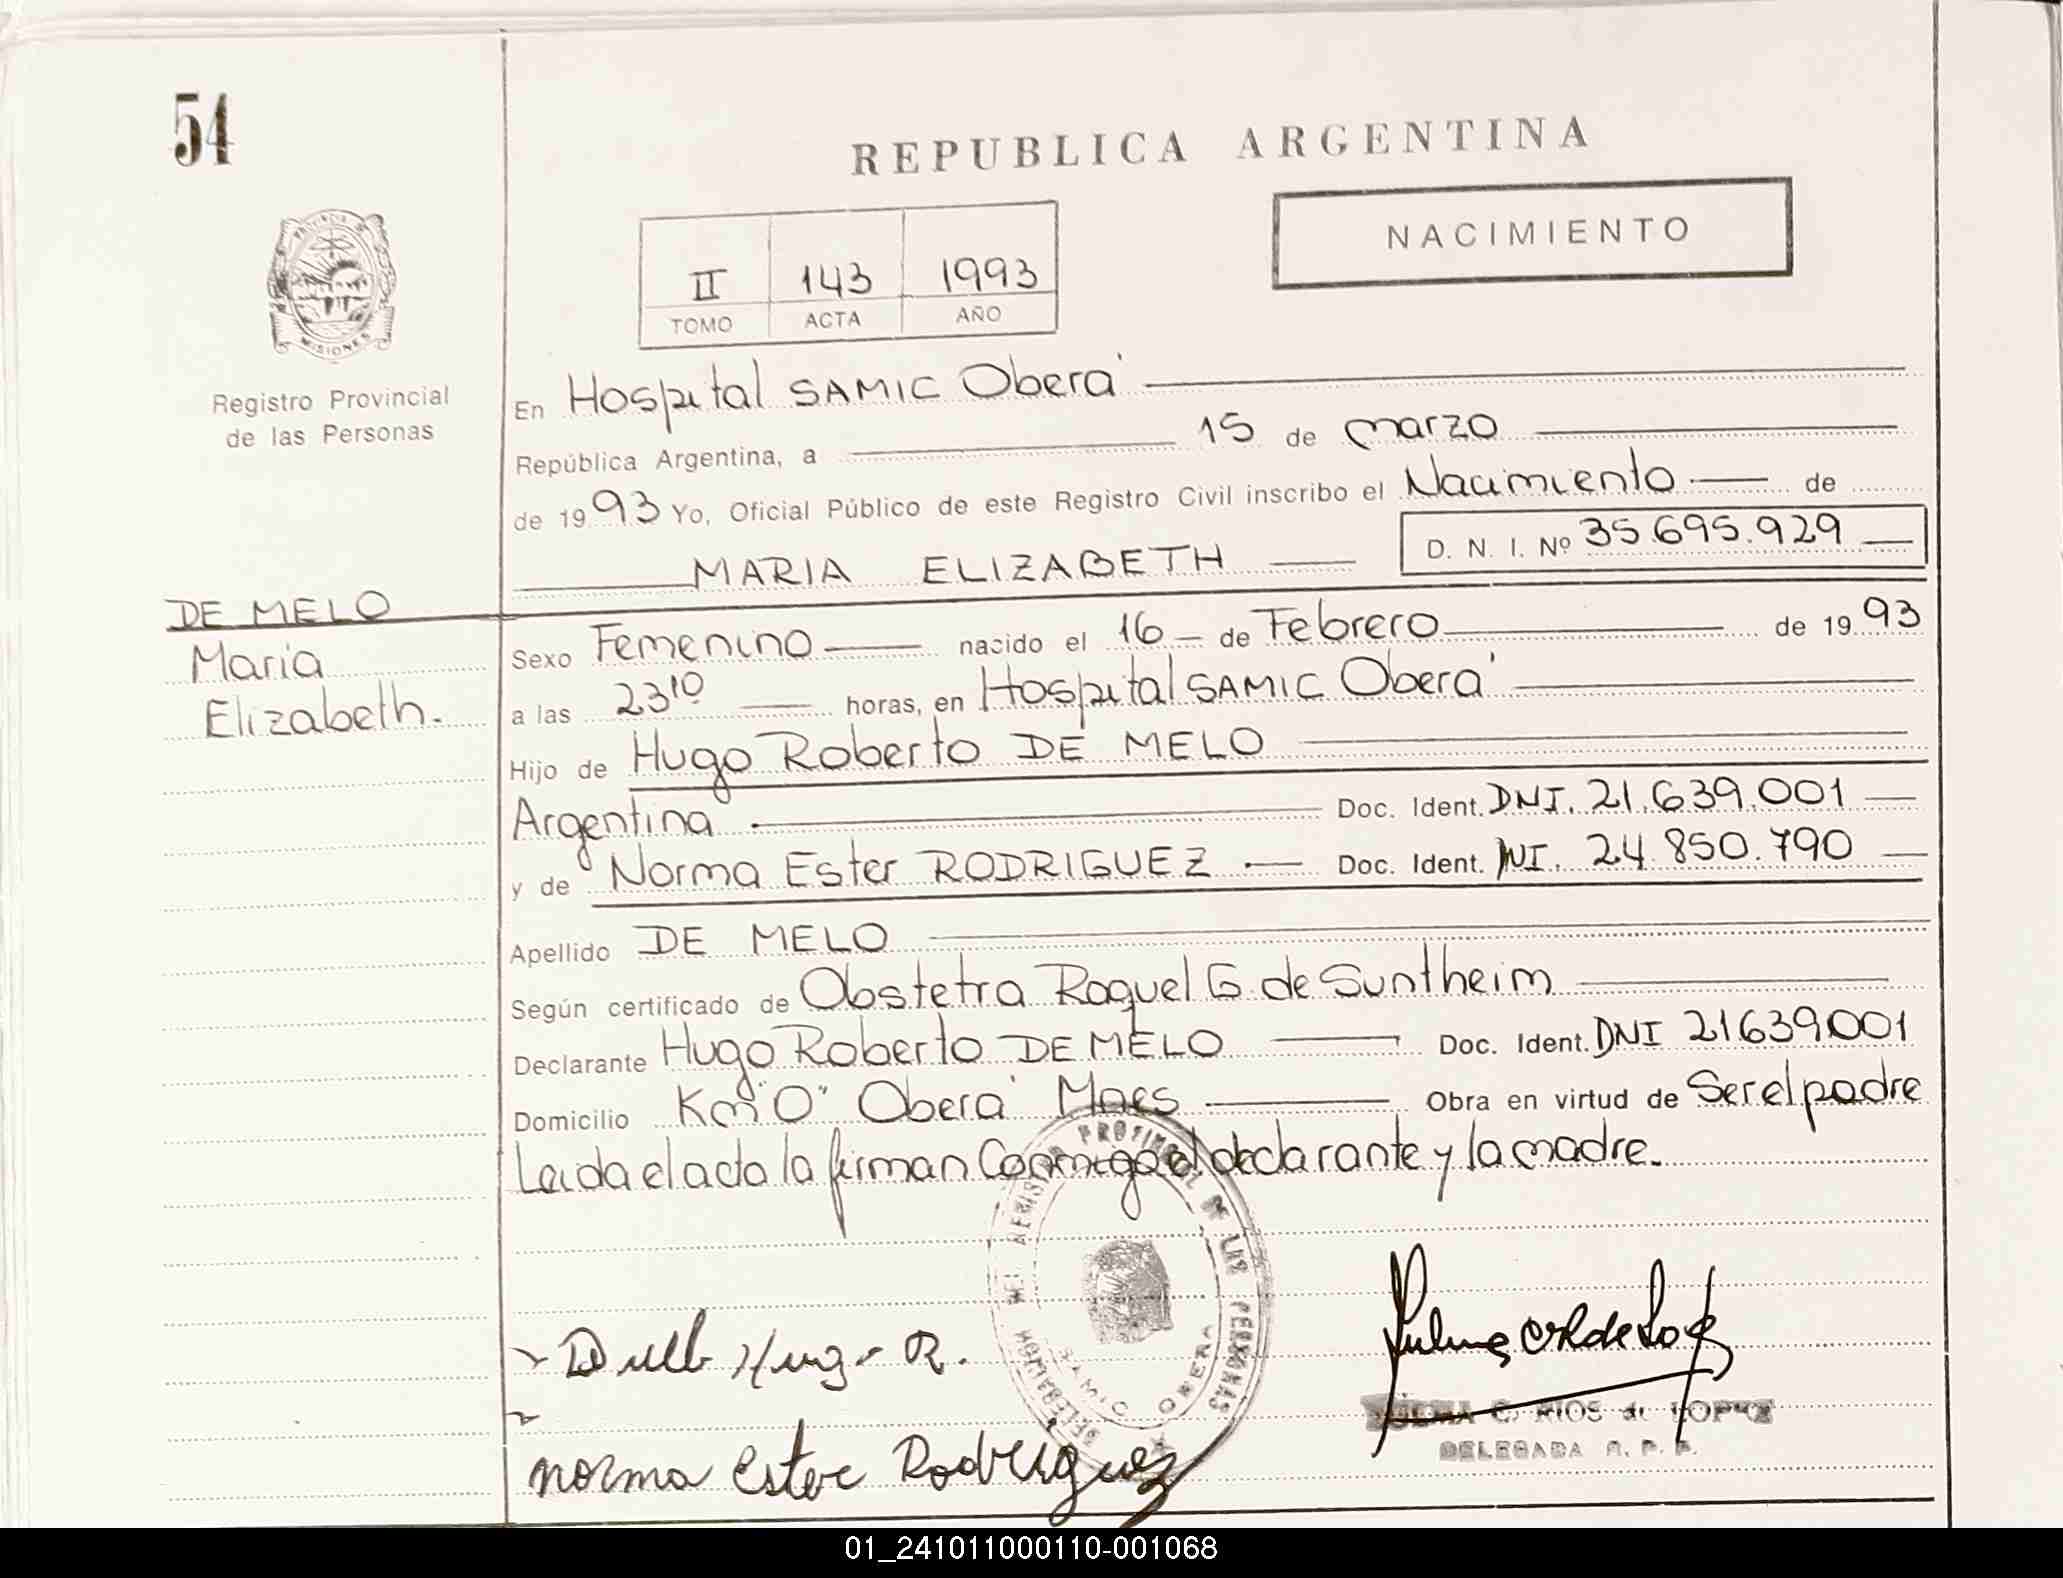 54
REPUBLICA ARGENTINA
NACIMIENTO
II 143 1993
TOMO ACTA AÑO
PROVINCIA
MISIONES
Registro Provincial
de las Personas
En Hospital SAMIC Oberá
República Argentina, a 15 de marzo
de 1993 Yo, Oficial Público de este Registro Civil inscribo el Nacimiento de
MARIA ELIZABETH D. N. I. Nº 35.695.929
DE MELO
Maria
Elizabeth.
Sexo Femenino nacido el 16 de Febrero de 1993
a las 23¹⁰ horas, en Hospital SAMIC Oberá
Hijo de Hugo Roberto DE MELO
Argentina Doc. Ident. DNI. 21.639.001
y de Norma Ester RODRIGUEZ Doc. Ident. DNI. 24.850.790
Apellido DE MELO
Según certificado de Obstetra Raquel G. de Suntheim
Declarante Hugo Roberto DE MELO Doc. Ident. DNI 21639001
Domicilio Km "0" Oberá Mnes Obra en virtud de Ser el padre
Leida el acta la firman Conmigo el declarante y la madre.
REGISTRO PROVINCIAL DE LAS PERSONAS
DELEGACION
SAMIC OBERA
Hugo R.
norma ester Rodriguez
C. RIOS de LOPEZ
DELEGADA R. P. P.
01_241011000110-001068